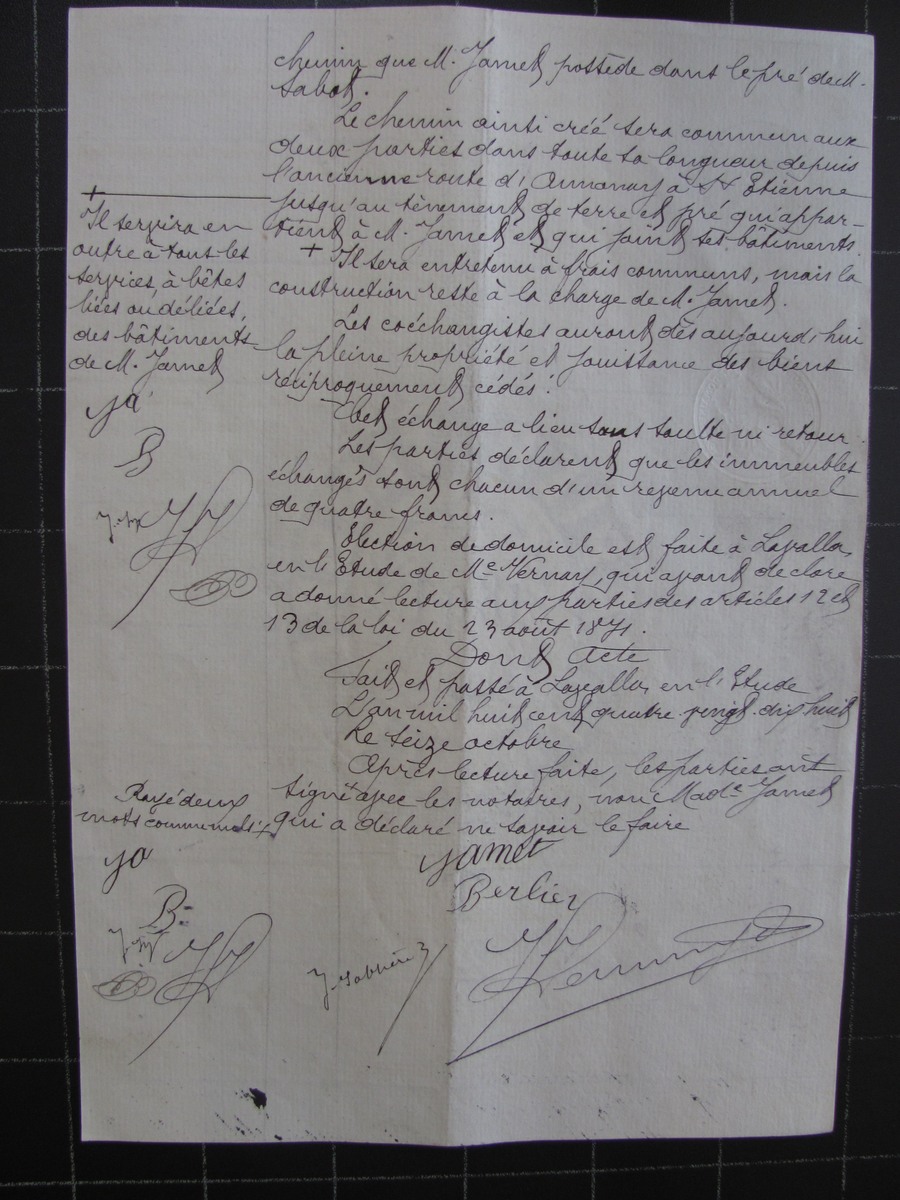 chemin que M. Jamet possède dans le pré de M.
Sabot.
Le chemin ainsi créé sera commun aux
deux parties dans toute sa longueur depuis
l'ancienne route d'Annonay à St Etienne
jusqu'au tènement de terre et pré qui appar-
tient à M. Jamet et qui joint ses bâtiments.
+ Il sera entretenu à frais communs, mais la
construction reste à la charge de M. Jamet.
Les coéchangistes auront dès aujourd'hui
la pleine propriété et jouissance des biens
réciproquement cédés.
Cet échange a lieu sans soulte ni retour.
Les parties déclarent que les immeubles
échangés sont chacun d'un revenu annuel
de quatre francs.
Election de domicile est faite à Lavalla,
en l'Etude de Me Vernay, qui avant de clore
a donné lecture aux parties des articles 12 et
13 de la loi du 23 août 1871.
Dont Acte
Fait et passé à Lavalla, en l'Etude
L'an mil huit cent quatre vingt dix huit
Le seize octobre
Après lecture faite, les parties ont
signé avec les notaires, non Made Jamet
qui a déclaré ne savoir le faire
+
Il servira en
outre à tous les
services, à bêtes
liées ou déliées,
des bâtiments
de M. Jamet
ja
B
Rayé deux
mots comme nuls
ja
B
jamet
Berlier